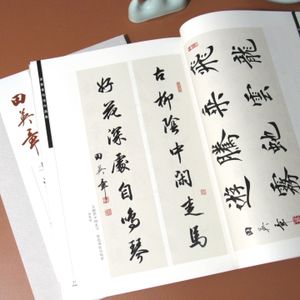 田英章
古柳陰中閒走馬
好花深處自鳴琴
田英章
飛龍
乘雲
騰虵
遊霧
田英章